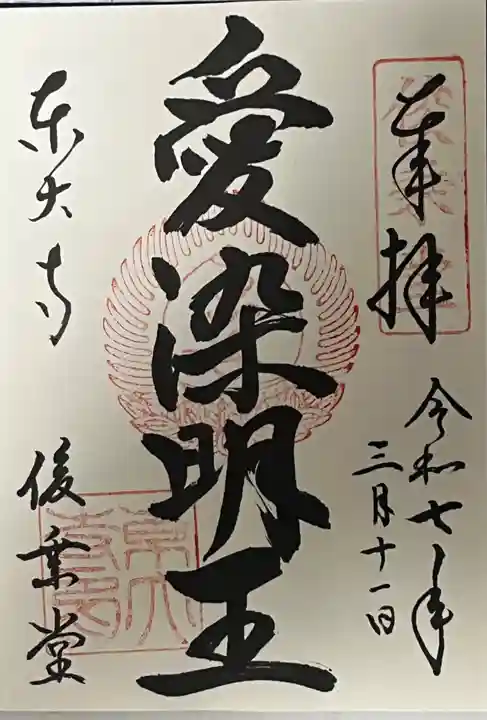 奉拝
令和七年
三月十一日
愛染明王
東大寺
俊乗堂